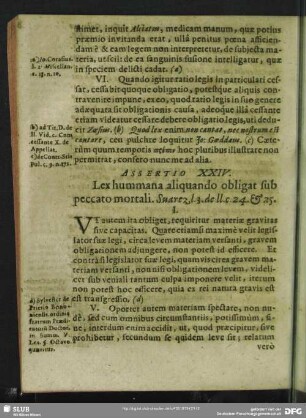 stimet, inquit Alciatum, medicam manum, quæ potius
præmio invitanda erat, ullâ penitus pœna afficiendam
è & eam legem non interpretetur, de subjecta materia,
utscil. de ex sanguinis fusione intelligatur, quæ
in speciem delicti cadat. (a)
VI. Quando igitur ratio legis in particulari cessat,
cessabit quoque obligatio, potestque aliquis contravenire
impune, ex eo, quod ratio legis in suo genere
adæquata sit obligationis causa, adeoque illâ cessante
etiam videatur cessare debere obligatio legis, uti deducit
(b) Quod lex enim non cavet, nec nostrum est
cavere, ceu pulchre loquitur Jo: Gœddæus. (c) Cæterùm
quum temporis metæ hoc pluribus illustrare non
permittat, consero nunc me ad alia.
ASSERTIO XXIV.
Lex hummana aliquando obligat sub
peccato mortali. Suarez, l. 3. de ll. c. 24. & 25.
I.
UT autem ita obliget, requiritur materia gravitas
sive capacitas. Quare etiamsi maximè velit legislator
suæ legi, circa levem materiam versanti, gravem
obligationem adjungere, non potest id efficere. Et
contra si legislator suæ legi, quamvis circa gravem materiam
versanti, non nisi obligationem levem, videlicet
sub veniali tantum culpa imponere velit, iterum
non potest hoc efficere, quia ex rei natura gravis est
est transgressio. (d)
V. Oportet autem materiam spectare, non nudè,
sed cum omnibus circumstantiis, potissimum, fine,
interdum enim accidit, ut, quod præcipitur, sive
prohibetur, secundum se quidem leve sit, relatum
verò
4. 13. n. 10.
b) ad Tit. D. de
Appellat.
SLUB
Wir führen Wissen.